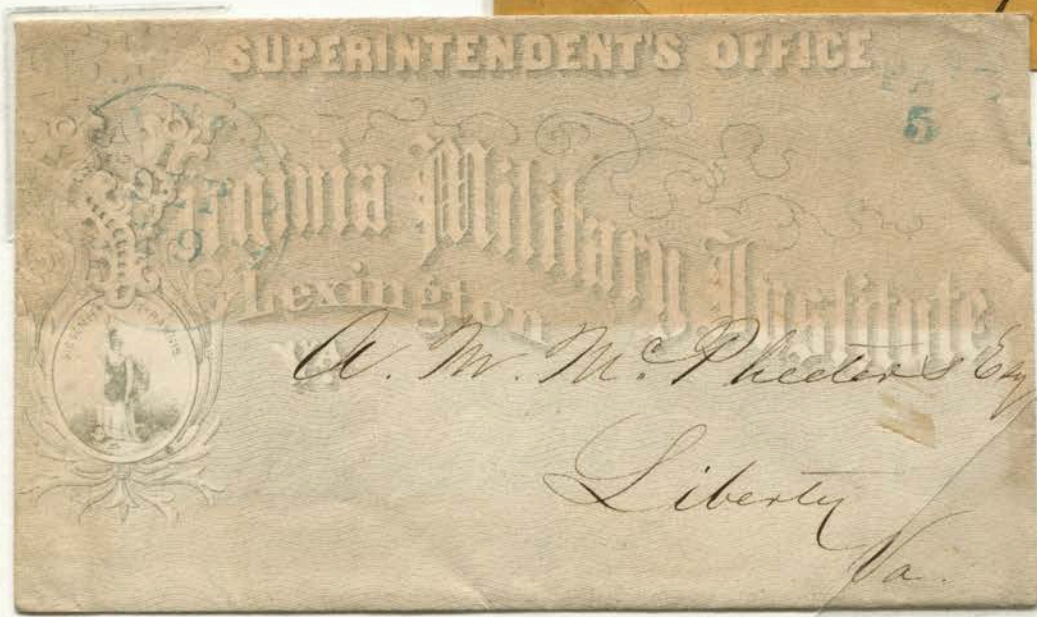 SUPERINTENDENT'S OFFICE
5
Virginia Military Institute
Lexington
VA.
A. M. McPheeters Esq
Liberty
Va.